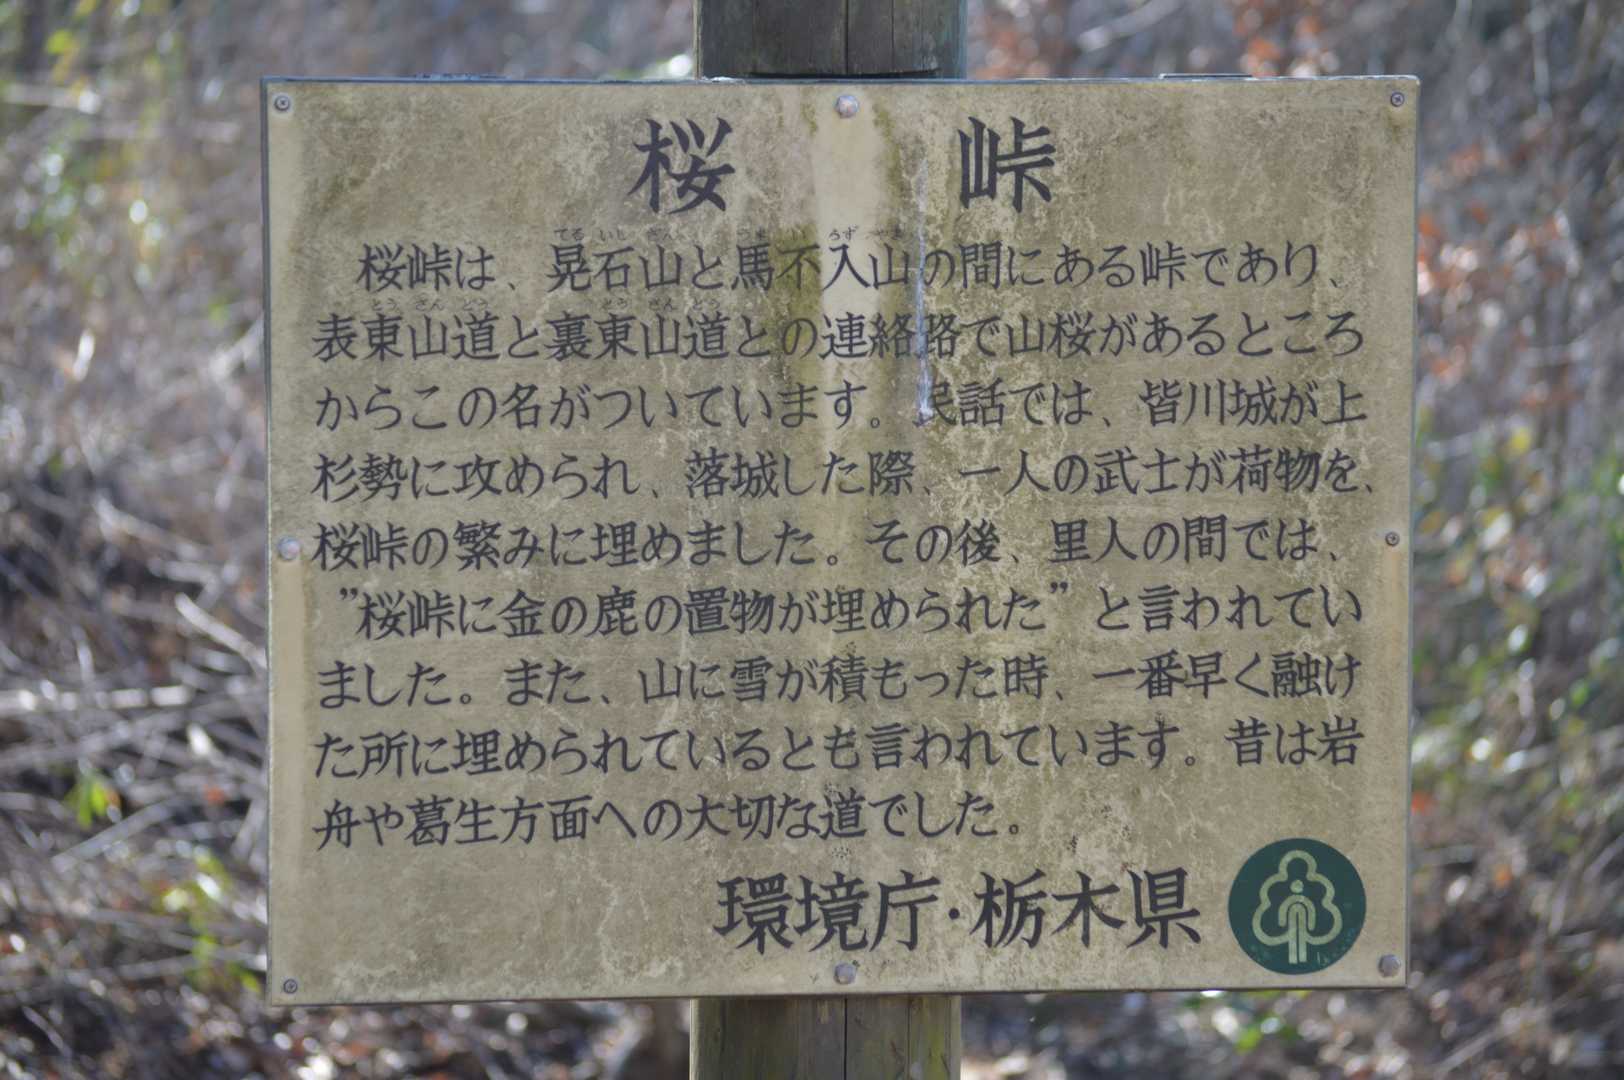 桜　峠
桜峠は、晃石山と馬不入山の間にある峠であり、
表東山道と裏東山道との連絡路で山桜があるところ
からこの名がついています。民話では、皆川城が上
杉勢に攻められ、落城した際、一人の武士が荷物を、
桜峠の繁みに埋めました。その後、里人の間では、
”桜峠に金の鹿の置物が埋められた”と言われてい
ました。また、山に雪が積もった時、一番早く融け
た所に埋められているとも言われています。昔は岩
舟や葛生方面への大切な道でした。
環境庁・栃木県